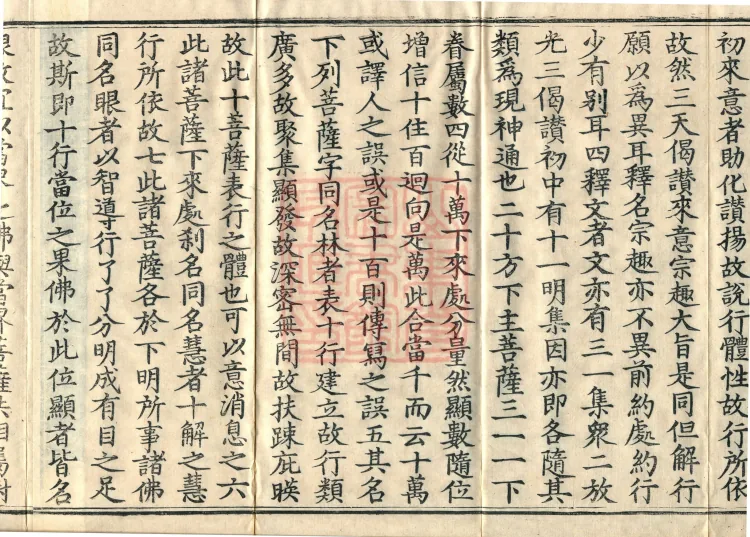 初來意者助化讃揚故說行體性故行所依
故然三天偈讃來意宗趣大旨是同但解行
願以爲異耳釋名宗趣亦不異前約處約行
少有别耳四釋文者文亦有三一集衆二放
光三偈讃初中有十一明集因亦即各隨其
類爲現神通也二十方下主菩薩三一一下
眷屬數四從十萬下來處分量然顯數隨位
增信十住百迴向是萬此合當千而云十萬
或譯人之誤或是十百則傳寫之誤五其名
下列菩薩字同名林者表十行建立故行類
廣多故聚集顯發故深密無間故扶踈庇映
故此十菩薩表行之體也可以意消息之六
此諸菩薩下來處刹名同名慧者十解之慧
行所依故七此諸菩薩各於下明所事諸佛
同名眼者以智導行了了分明成有目之足
故斯即十行當位之果佛於此位顯者皆名